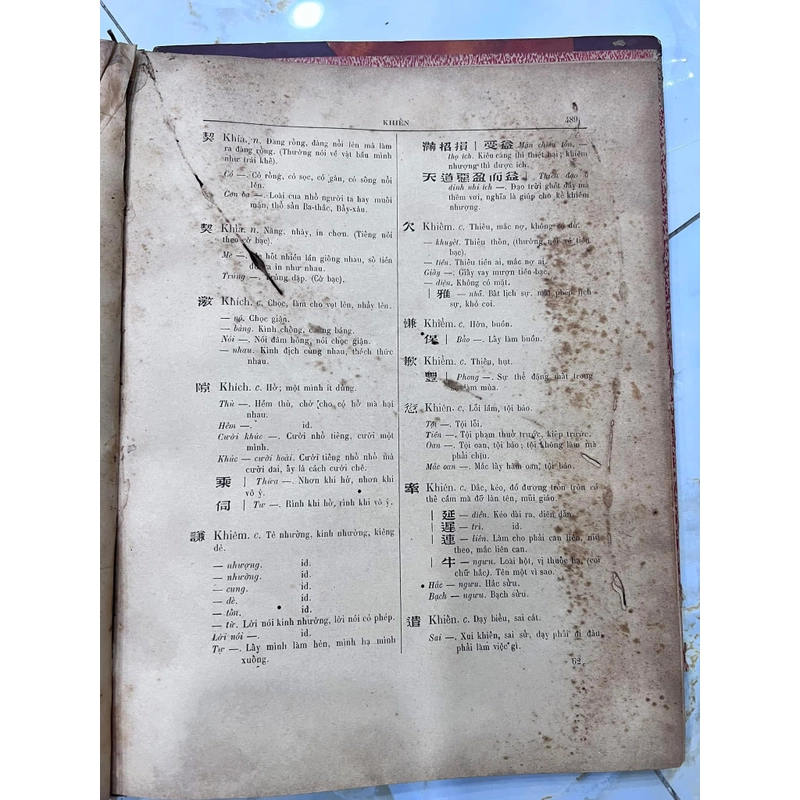 KHIÊN
489
契 Khía. n. Đàng rỏng, đàng nổi lên mà làm
ra đàng rỏng. (Thường nói về vật bẩn mình
như trái khế).
Có —. Có rỏng, có sọc, có gân, có sóng nổi
lên.
Con ba —. Loài cua nhỏ người ta hay muối
mắn, thổ sản Ba-thắc, Bảy-xàu.
契 Khía. n. Nâng, nhảy, in chơn. (Tiếng nói
theo cờ bạc).
hốt nhiều lần giồng nhau, số tiền
ra in như nhau.
Trúng —. Trúng dập. (Cờ bạc).
激 Khích. c. Chọc, làm cho vọt lên, nhảy lên.
— nộ. Chọc giận.
— bảng. Kình chồng, cang bảng.
Nói —. Nói đâm hông, nói chọc giận.
— nhau. Kình địch cùng nhau, thách thức
nhau.
隙 Khích. c. Hở; một mình ít dùng.
Thù —. Hềm thù, chờ cho có hở mà hại
nhau.
Hềm —. id.
Cười khúc —. Cười nhỏ tiếng, cười một
mình.
Khúc — cười hoài. Cười tiếng nhỏ nhỏ mà
cười dai, ấy là cách cười chê.
乘 | Thừa —. Nhơn khi hở, nhơn khi
vô ý.
伺 | Tư —. Rình khi hở, rình khi vô ý.
謙 Khiêm. c. Tê nhường, kính nhường, kiêng
dè.
— nhượng. id.
— nhường. id.
— cung. id.
— dè. id.
— tốn. id.
— từ. Lời nói kính nhường, lời nói có phép.
Lời nói —. id.
Tự —. Lấy mình làm hèn, mình hạ mình
xuống.
滿招損 | 受益 Mãn chiêu tổn, —
thọ ích. Kiêu căng thì thiệt hại; khiêm
nhượng thì được ích.
天道惡盈而益 | Thiên đạo ố
dinh nhi ích —. Đạo trời ghét đầy mà
thêm vơi, nghĩa là giúp cho kẻ khiêm
nhượng.
欠 Khiếm. c. Thiếu, mắc nợ, không có đủ.
— khuyết. Thiếu thốn, (thường nói về tiền
bạc).
— tiền. Thiếu tiền ai, mắc nợ ai.
Giấy —. Giấy vay mượn tiền bạc.
— diện. Không có mặt.
| 雅 — nhã. Bất lịch sự, mất phép lịch
sự, khó coi.
慊 Khiểm. c. Hờn, buồn.
保 | Bảo —. Lấy làm buồn.
歉 Khiểm. c. Thiếu, hụt.
豐 | Phong —. Sự thể đặng mất trong
làm mùa.
愆 Khiên. c. Lỗi lầm, tội báo.
Tội —. Tội lỗi.
Tiền —. Tội phạm thuở trước, kiếp trước.
Oan —. Tội oan, tội báo; tội không làm mà
phải chịu.
Mắc oan —. Mắc lấy hàm oan, tội báo.
牽 Khiên. c. Dắc, kéo, đồ đương tròn tròn có
thể cầm mà đỡ làn tên, mũi giáo.
| 延 — diên. Kéo dài ra, diên dẫn.
| 遲 — trì. id.
| 連 — liên. Làm cho phải can liên, níu
theo, mắc liên can.
| 牛 — ngưu. Loài hột, vị thuốc hạ, (coi
chữ hắc). Tên một vì sao.
Hắc — ngưu. Hắc sửu.
Bạch — ngưu. Bạch sửu.
遣 Khiển. c. Dạy biểu, sai cắt.
Sai —. Xui khiến, sai sử, dạy phải đi đâu,
phải làm việc gì.
62